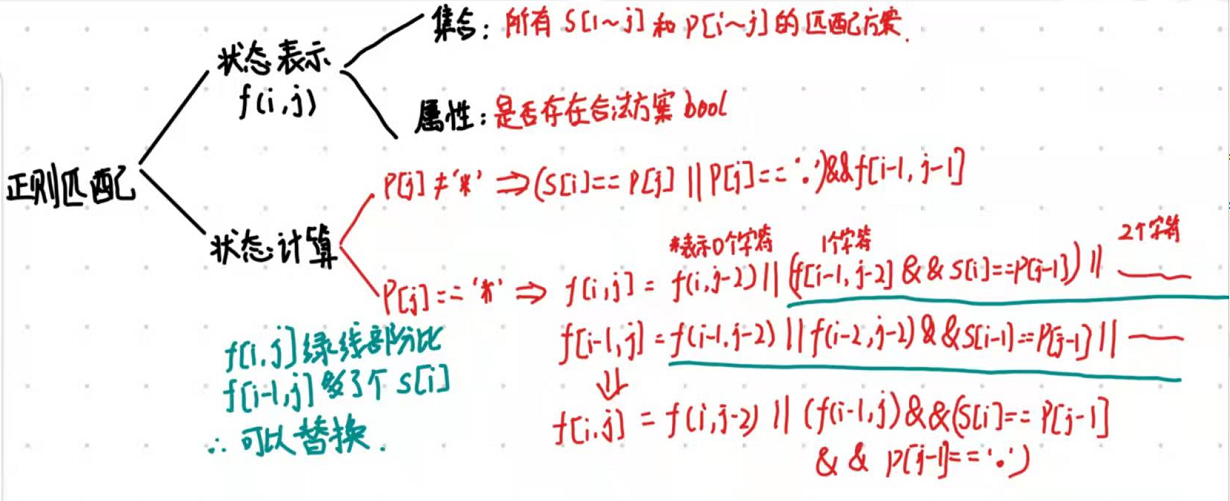 集合：所有 S[1~j] 和 P[i~j] 的匹配方案.
状态表示
f(i,j)
属性：是否存在合法方案 bool
正则匹配
P[j] ≠ '*' ⇒ (S[i]== P[j] || P[j]== '.')&&f[i-1, j-1]
状态计算
*表示0个字符 1个字符 2个字符
P[j]== '*' ⇒ f(i,j] = f(i,j-2) || (f[i-1,j-2] && S[i]==P[j-1]) ||
f[i-1,j] = f(i-1,j-2) || f(i-2,j-2) && S[i-1]==P[j-1] ||
⇓
f[i,j] = f(i,j-2) || (f(i-1,j) &&(S[i]== P[j-1]
&& P[j-1]== '.')
f[i,j]绿线部分比
f[i-1,j]多了个 S[i]
∴ 可以替换.